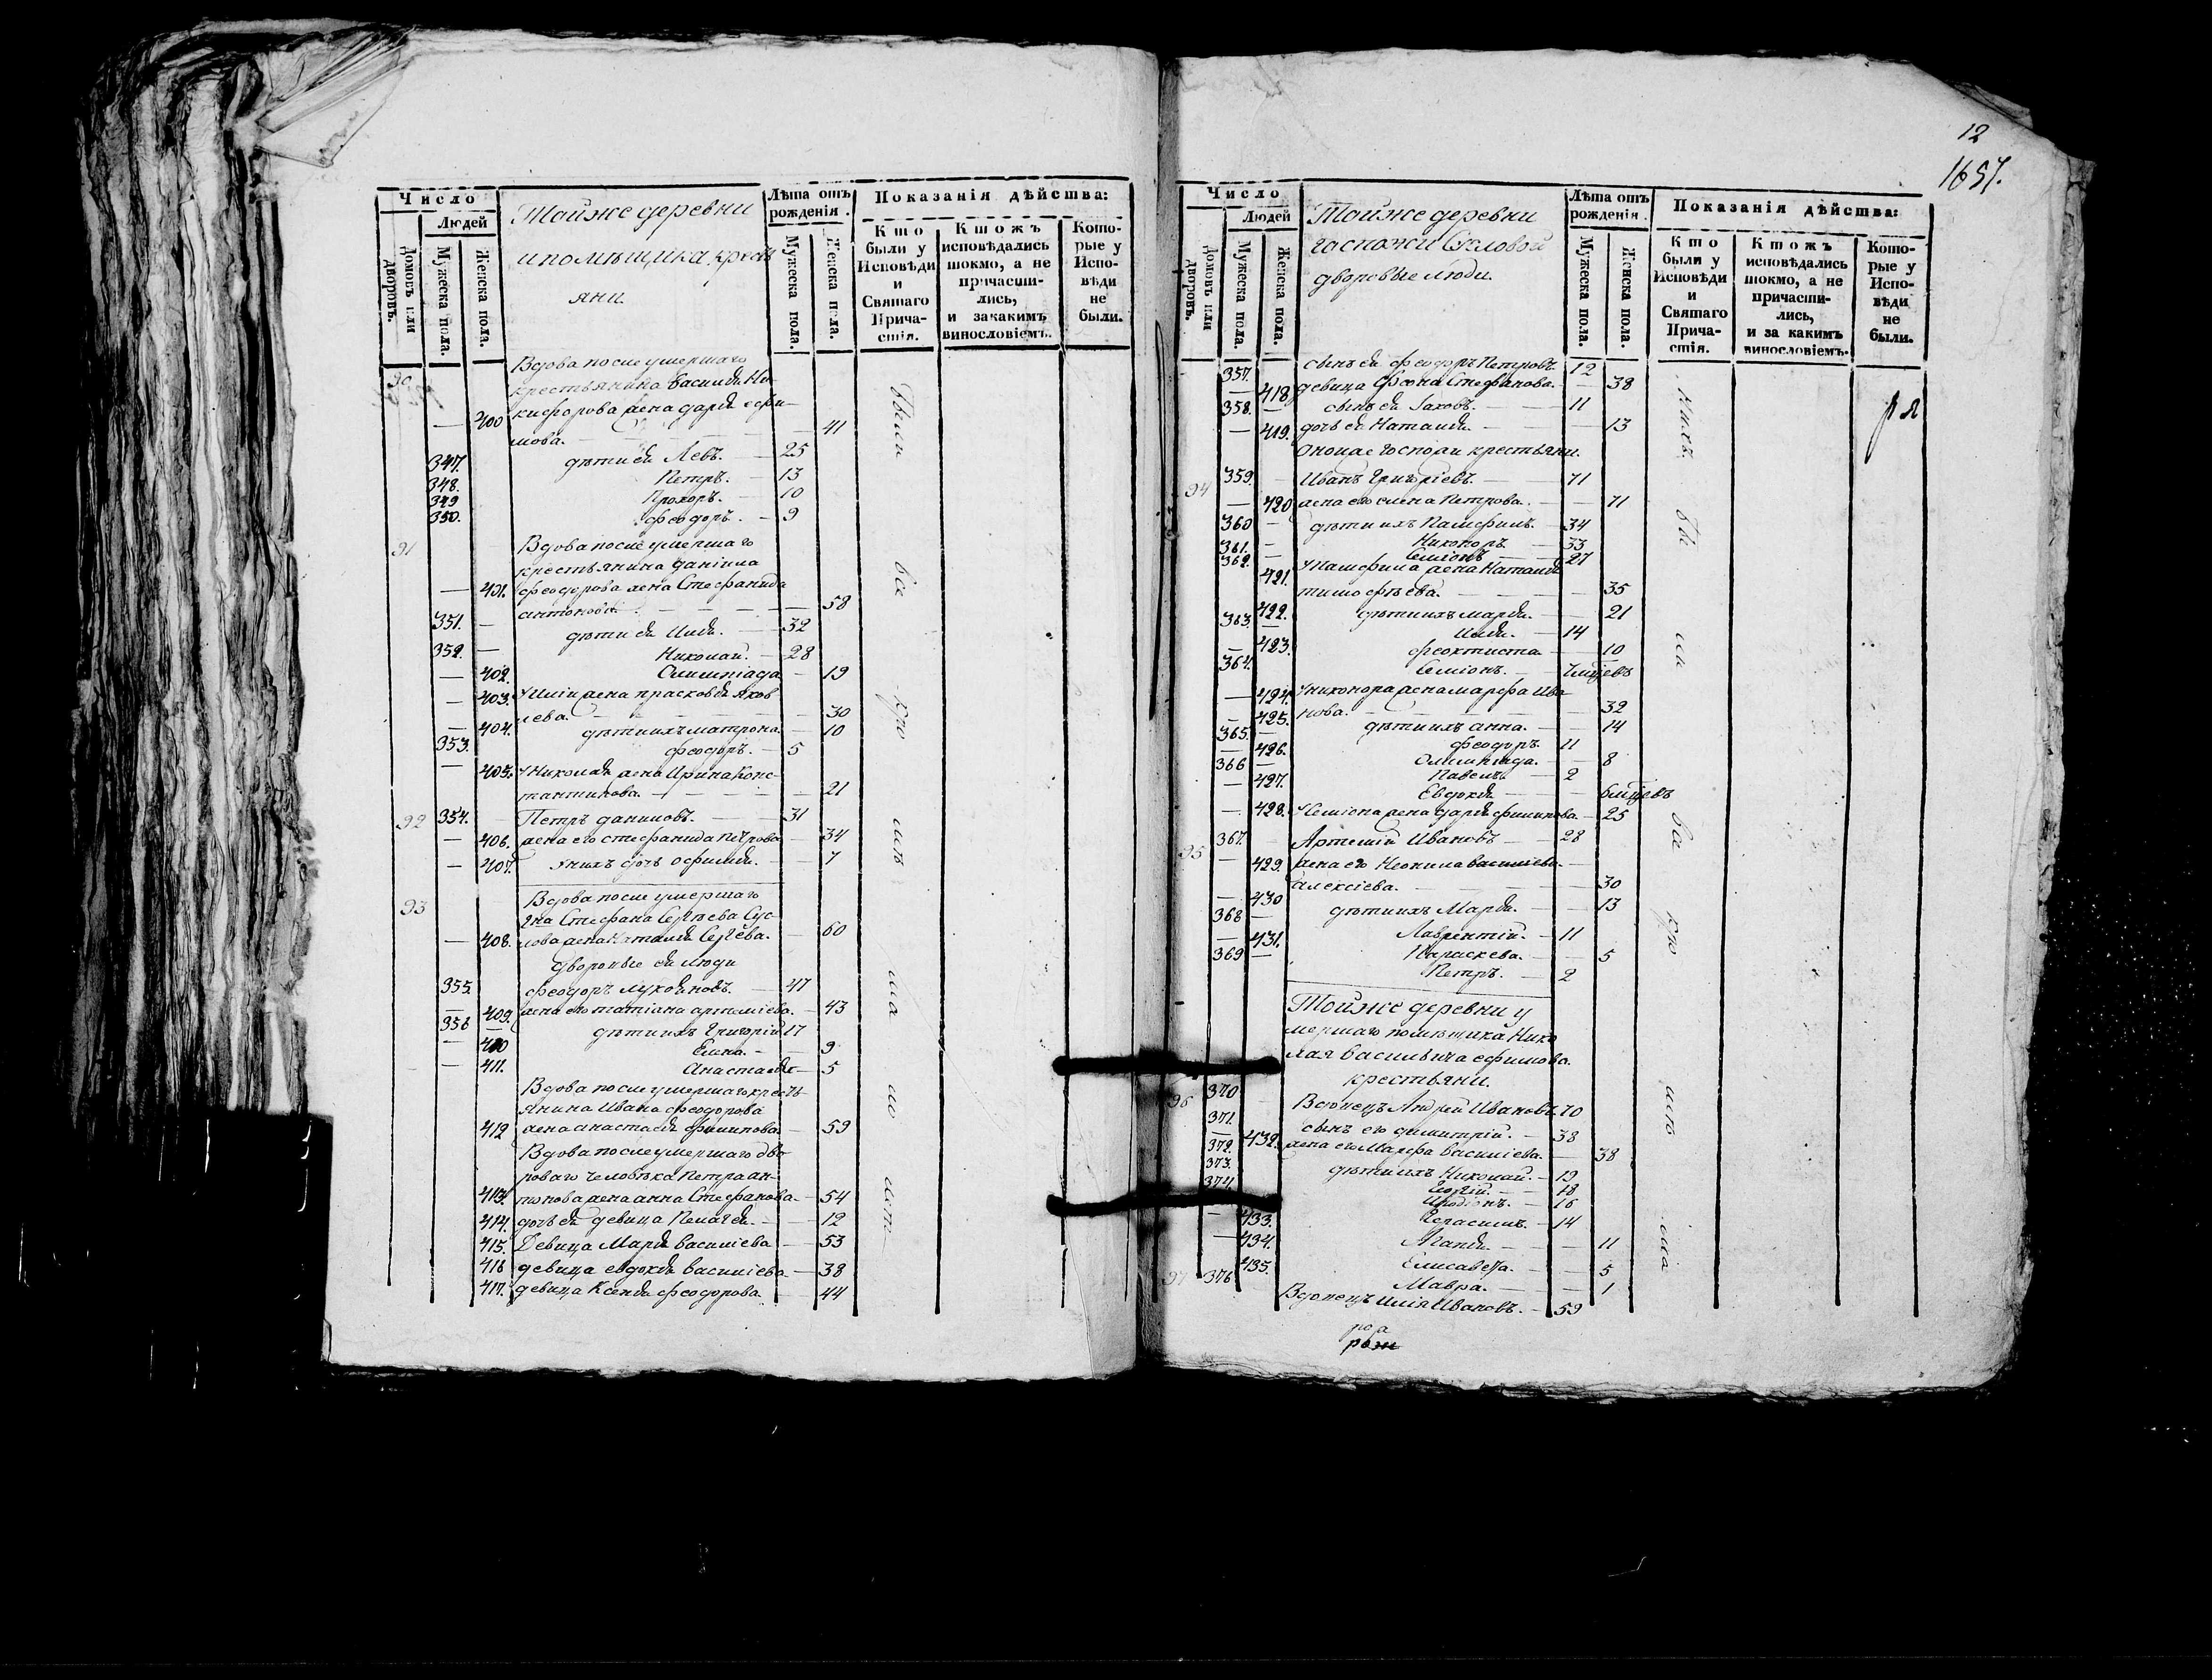 Число
Людей
Домовъ или дворовъ.
Мужеска пола.
Женска пола.
Тойже деревни
и помѣщика крест
яни
Лѣта отъ рожденія.
Мужеска пола.
Женска пола.
Показанія дѣйства:
Кто были у Исповѣди и Святаго Причастія.
Ктожъ исповѣдались токмо, а не причастились, и закакимъ винословіемъ.
Которые у Исповѣди не были.
90 Вдова после умершаго
крестьянина Василия Ни-
— 400 кифорова жена дария ефи-
мова. — 41
347. дѣти ея Левъ. — 25
348. Петръ. — 13
349 Прохоръ. — 10
350. феодоръ. — 9
91 Вдова после умершаго
крестьянина данiила
— 401. феодорова жена Стефанида
антонова. — 58
351. — дѣти ея Илия. — 32
352. — Николай. — 28
— 402. Олимпiада — 19
— 403. У Илiи жена прасковья яков
лева. — 30
— 404. дѣти ихъ матрона — 10
353. феодоръ. — 5
— 405. У Николая жена Ирина Конс-
тантинова. — 21
92 354. Петръ даниловъ. — 31
— 406. жена его стефанида петрова — 34
— 407. у нихъ дочь офимия. — 7
93 Вдова после умершаго
г̃на Стефана Сергѣева Сус-
— 408. лова жена Наталия Сергѣева. — 60
Дворовые ея люди
355. феодоръ лукояновъ. — 47
— 409. жена его татiана артемiева. — 43
356 — дѣти ихъ Григорiй 17
— 410 Елена. — 9
— 411. Анастасия — 5
Вдова после умершаго кресть
янина Ивана феодорова
412 жена анастасия филипова — 59
Вдова после умершаго дво
роваго человѣка Петра ан-
413. тонова жена анна Стефанова — 54
414. дочь ея девица Пелагея. — 12
415. Девица Мария василiева — 53
416 девица евдокия василiева — 38
417. девица Ксения феодорова — 44
Были все кто
12
1657.
Число
Людей
Домовъ или дворовъ.
Мужеска пола.
Женска пола.
Тойже деревни
госпожи Сусловой
дворовые люди.
Лѣта отъ рожденія.
Мужеска пола.
Женска пола.
Показанія дѣйства:
Кто были у Исповѣди и Святаго Причастія.
Ктожъ исповѣдались токмо, а не причастились, и за какимъ винословіемъ.
Которые у Исповѣди не были.
357. сынъ ея феодоръ Петровъ. 12
418 девица Феона Стефанова. — 38
358. — сынъ ея Iаковъ. — 11
— 419. дочь ея Наталия. — 13
Оной же госпожи крестьяни.
94 359. — Иванъ Григорiевъ. — 71
— 420 жена его елена Петрова. — 71
360 — дѣти ихъ Памфилъ. — 34
361. — Никоноръ. — 33
362. Семiонъ — 27
421. У Памфила жена Наталия
тимофѣева. — 35
422. дѣти ихъ мария. — 21
363. — Илия. — 14
— 423. феоктиста — 10
364. Семiонъ. —
— 424. У никонора жена марфа Ива
нова. — 32
— 425. дѣти ихъ анна. — 14
365. — феодоръ. 11
— 426. Олимпiада. — 8
366 — Павелъ. — 2
— 427. Евдокия —
— 428. У Семiона жена дария филипова. — 25
95 367. — Артемiй Ивановъ — 28
— 429. жена его Неонила василiева
алексiева. — 30
— 430 дѣти ихъ Мария. — 13
368 — Лаврентiй. — 11
— 431. Параскева. — 5
369 — Петръ. — 2
Тойже деревни у
мершаго помѣщика Нико
лая василича ефимова.
крестьяни.
96 370 Вдовецъ Андрей Ивановъ. 70
371. сынъ его димитрiй. — 38
— 432. жена его Марфа василiева. — 38
372. дѣти ихъ Николай. — 19
373. Георгiй. — 18
374. Иродiонъ. — 16
Герасимъ. — 14
— 433. Агапия. — 11
— 434. Елисавета. — 5
435. Мавра. — 1
97 376 Вдовецъ Илия Ивановъ. — 59
нихъ бы ли все кто